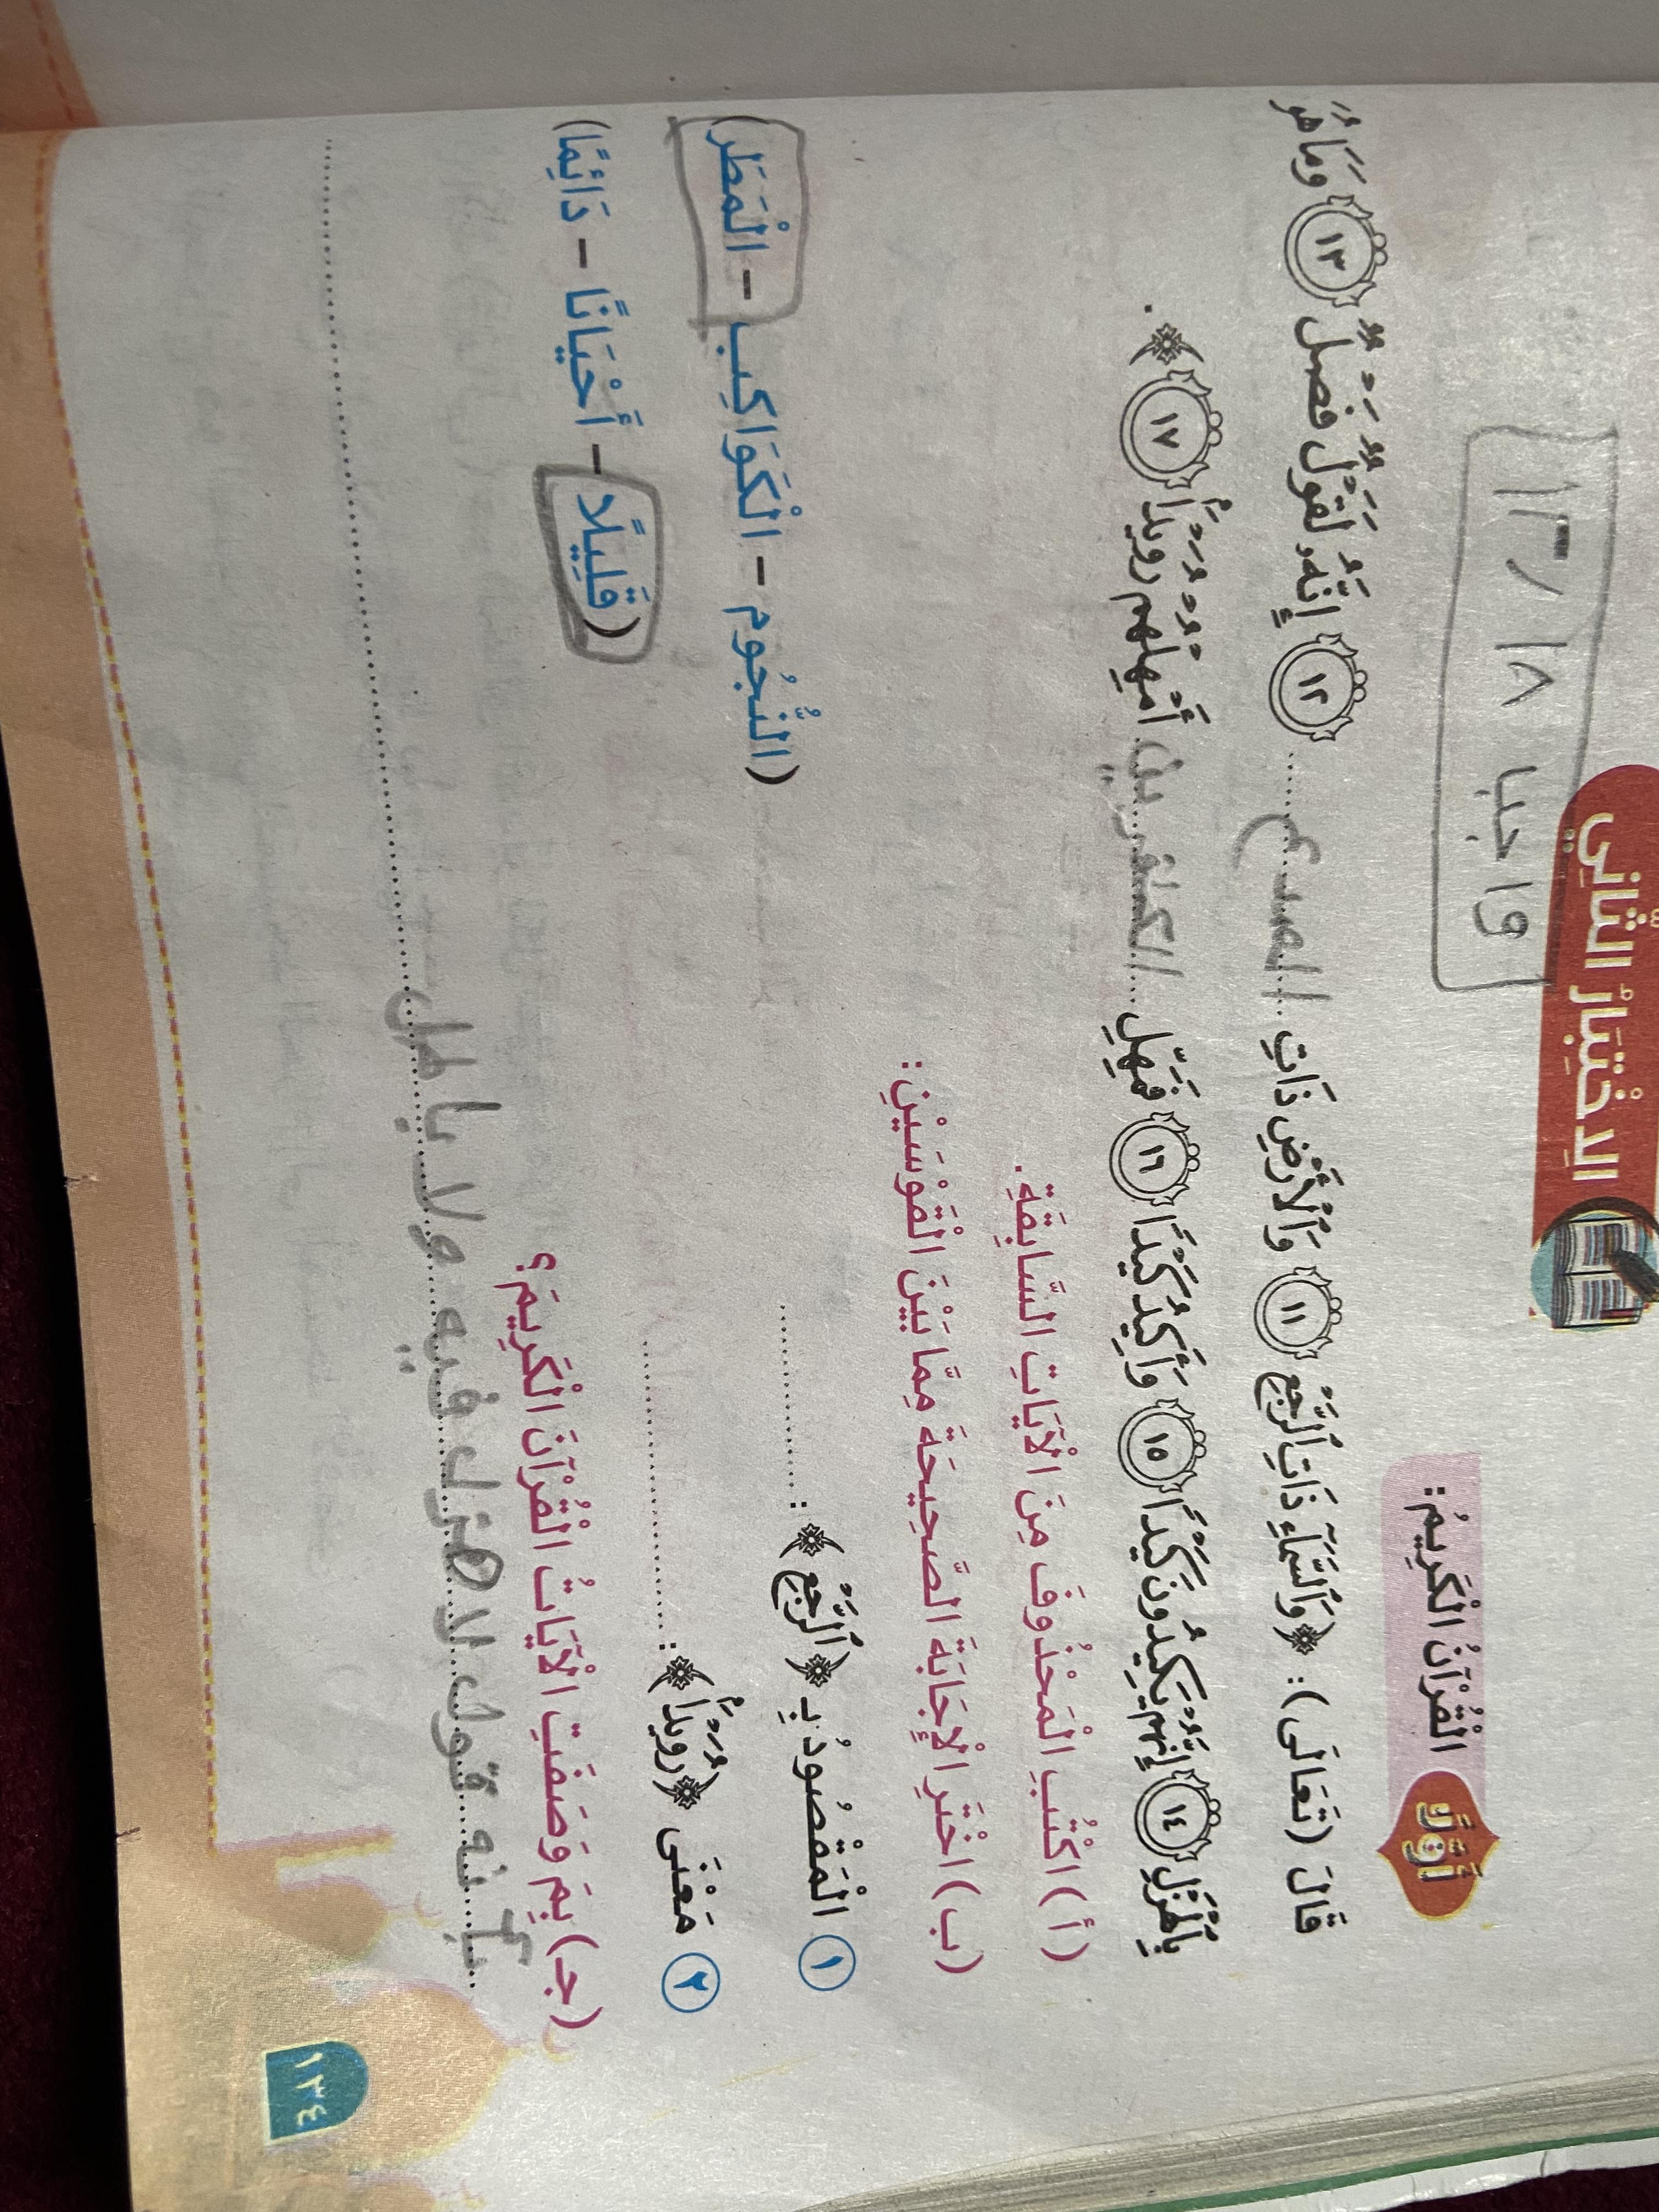 الِاخْتِبَارُ الثَّانِي
واجب ١٣/١٨
أَوَّلًا الْقُرْآنُ الْكَرِيمُ:
قَالَ (تَعَالَى): ﴿وَٱلسَّمَآءِ ذَاتِ ٱلرَّجْعِ ١١ وَٱلْأَرْضِ ذَاتِ ..الصدع.. ١٢ إِنَّهُۥ لَقَوْلٌ فَصْلٌ ١٣ وَمَا هُوَ
بِٱلْهَزْلِ ١٤ إِنَّهُمْ يَكِيدُونَ كَيْدًا ١٥ وَأَكِيدُ كَيْدًا ١٦ فَمَهِّلِ ..الكـٰفرين.. أَمْهِلْهُمْ رُوَيْدًۢا ١٧﴾.
(أ) اكْتُبِ الْمَحْذُوفَ مِنَ الْآيَاتِ السَّابِقَةِ.
(ب) اخْتَرِ الْإِجَابَةَ الصَّحِيحَةَ مِمَّا بَيْنَ الْقَوْسَيْنِ:
١ الْمَقْصُودُ بِـ ﴿ٱلرَّجْعِ﴾: .............. (النُّجُوم – الْكَوَاكِب – الْمَطَر)
٢ مَعْنَى ﴿رُوَيْدًۢا﴾: .............. (قَلِيلًا – أَحْيَانًا – دَائِمًا)
(جـ) بِمَ وَصَفَتِ الْآيَاتُ الْقُرْآنَ الْكَرِيمَ؟
بأنه قول لا هزل فيه ولا باطل
١٣٤